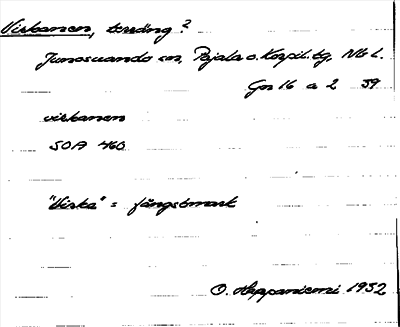 Virkanen, terräng?
Junosuando sn, Pajala o. Korpil. tg, Nb l.
Gn 16 a 2 59
virkanen
SOA 460
"Virka" = fångstmark
O. Happaniemi 1932